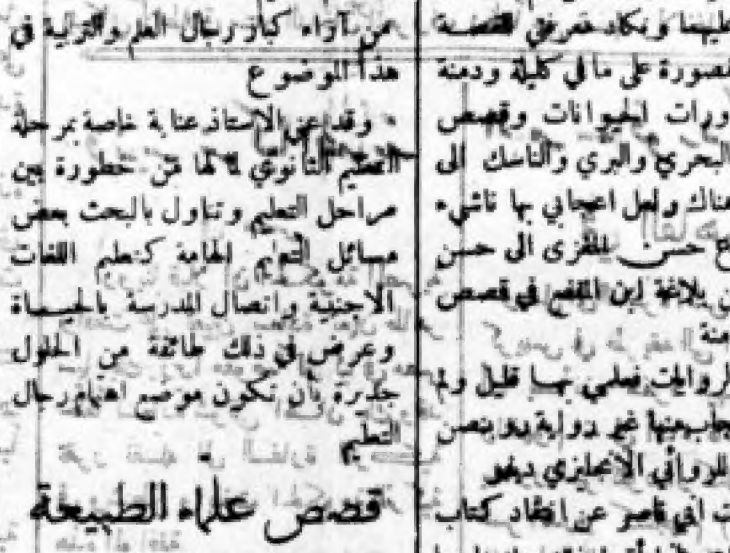 عليهما وتكاد معرفتي للقصة
مقصورة على ما في كليلة ودمنة
ورات الحيوانات وقصص
البحري والبري والناسك الى
هناك ولعل اعجابي بها ناشيء
حسن المغزى الى حسن
بلاغة ابن المقفع في قصص
دمنة
الروايات فعلمي بها قليل ولم
غير رواية
للروائي الانجليزي
عن انتقاد كتاب
من آراء كبار رجال العلم والتربية في
هذا الموضوع
وقد عني الاستاذ عناية خاصة بمرحلة
التعليم الثانوي لما لها من خطورة بين
مراحل التعليم وتناول بالبحث بعض
مسائل التعليم الهامة كتعليم اللغات
الاجنبية واتصال المدرسة بالحياة
وعرض في ذلك طائفة من الحلول
جديرة بأن تكون موضع اهتمام رجال
التعليم
قصص علماء الطبيعة